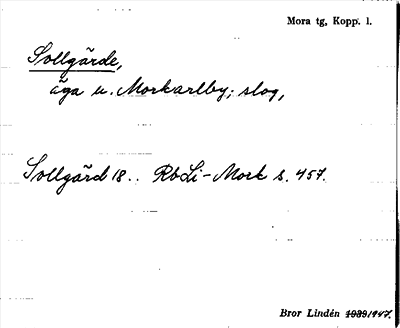 Mora tg, Kopp. l.
Sollgärde,
äga u. Morkarlby; slog,
Sollgärd 18.. RbLi-Mork s. 457.
Bror Lindén 1939/1947.